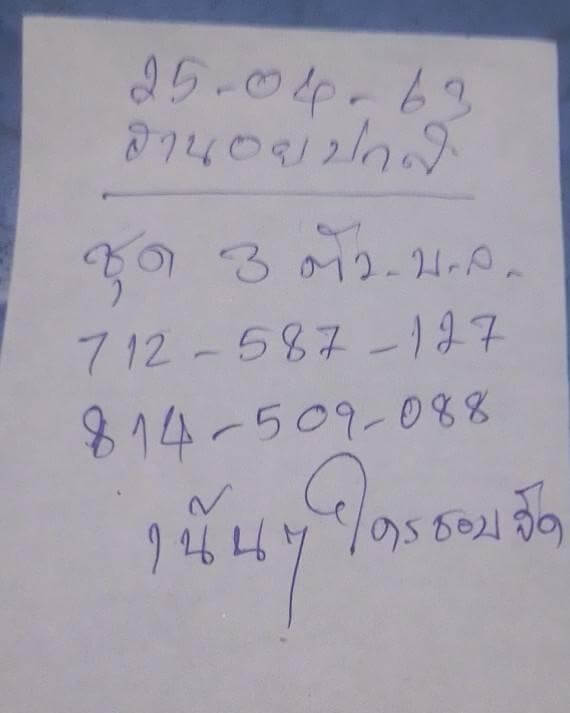 25-04-63
ชุด 3 ตัว-บ-ล-
712-587-127
814-509-088
เน้นๆ ใครชอบจัด